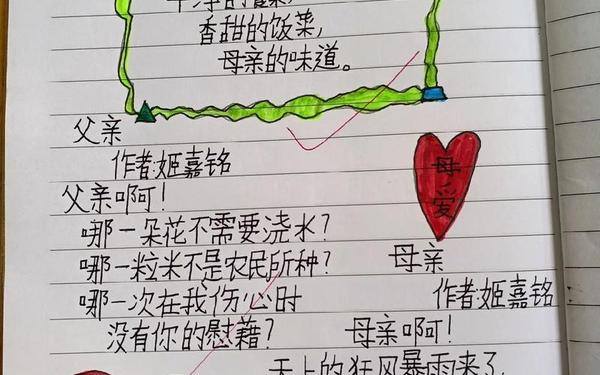 干净的餐桌,
香甜的饭菜,
母亲的味道。
父亲
作者:姬嘉铭
父亲啊!
哪一朵花不需要浇水?
哪一粒米不是农民所种?
哪一次在我伤心时
没有你的慰藉?
母爱
母亲
作者:姬嘉铭
母亲啊!
天上的狂风暴雨来了,